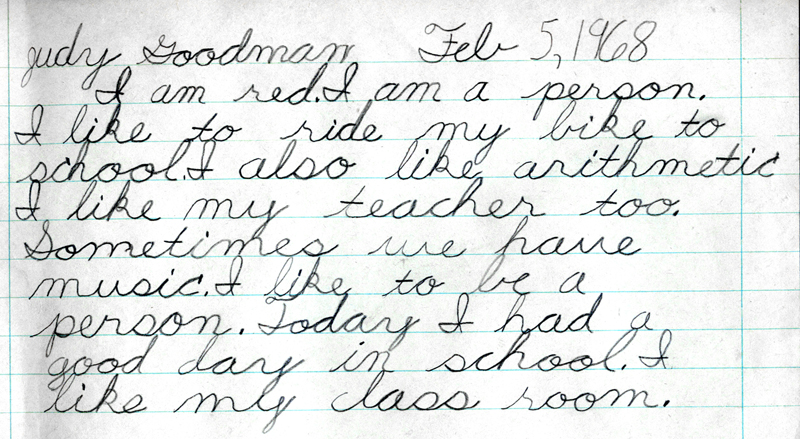 judy Goodman Feb 5, 1968
I am red. I am a person.
I like to ride my bike to
school. I also like arithmetic
I like my teacher too.
Sometimes we have
music. I like to be a
person. Today I had a
good day in school. I
like my class room.